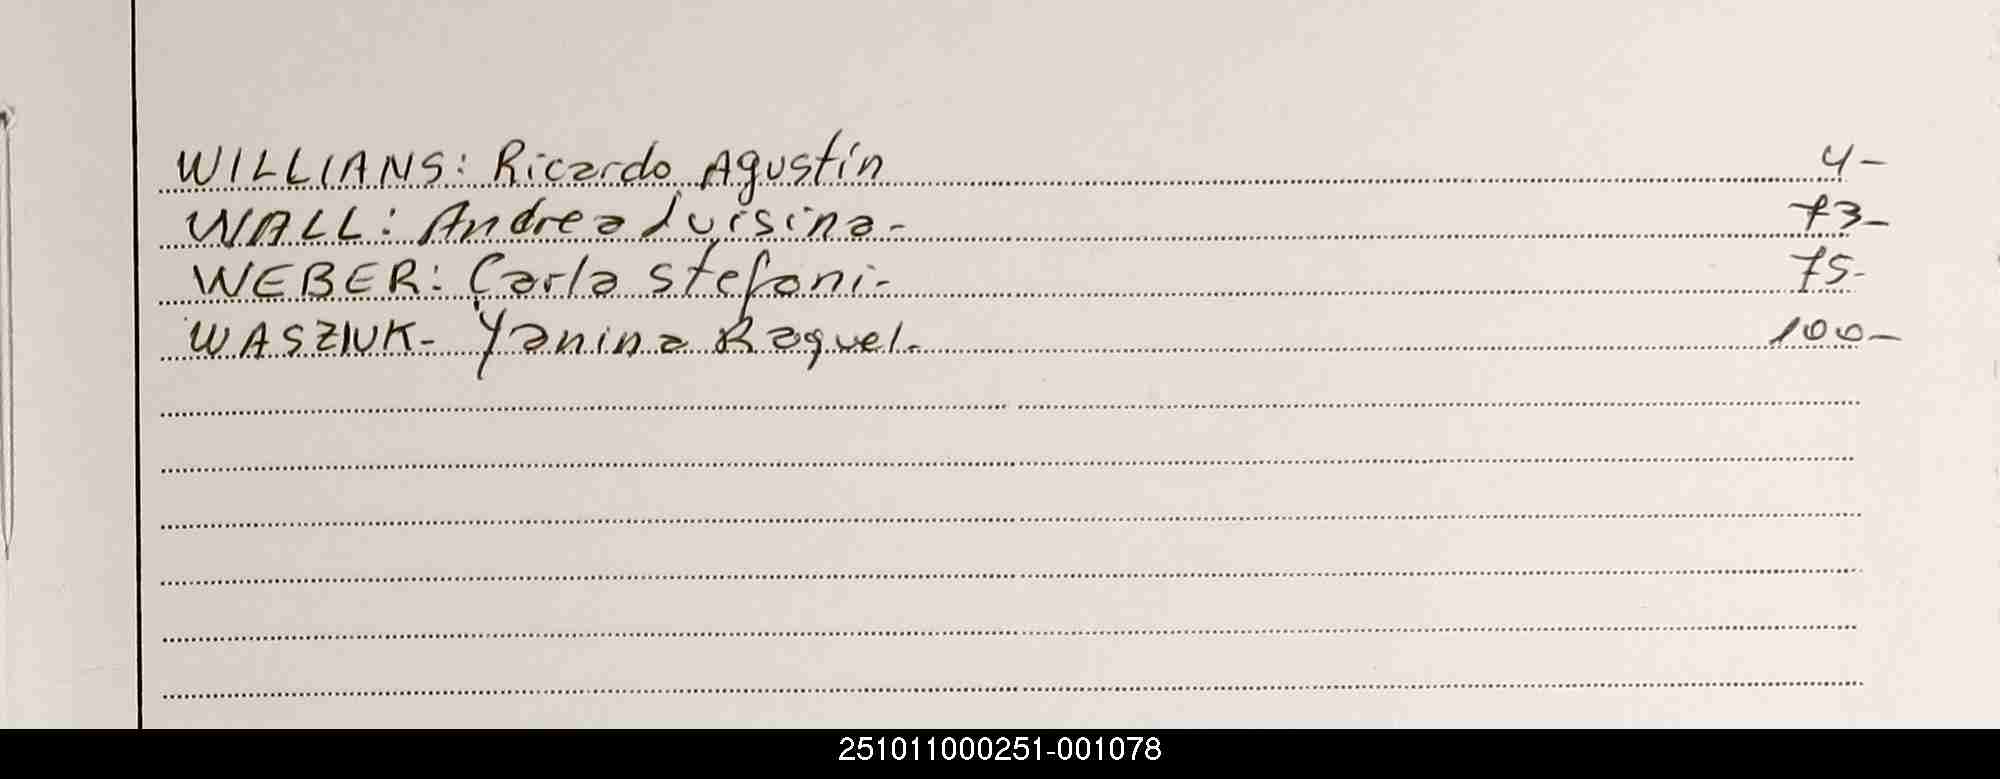 WILLIANS: Ricardo Agustín 4-
WALL: Andrea Luisina- 73-
WEBER: Carla Stefani- 75-
WASZIUK- Yanina Raquel- 100-
251011000251-001078